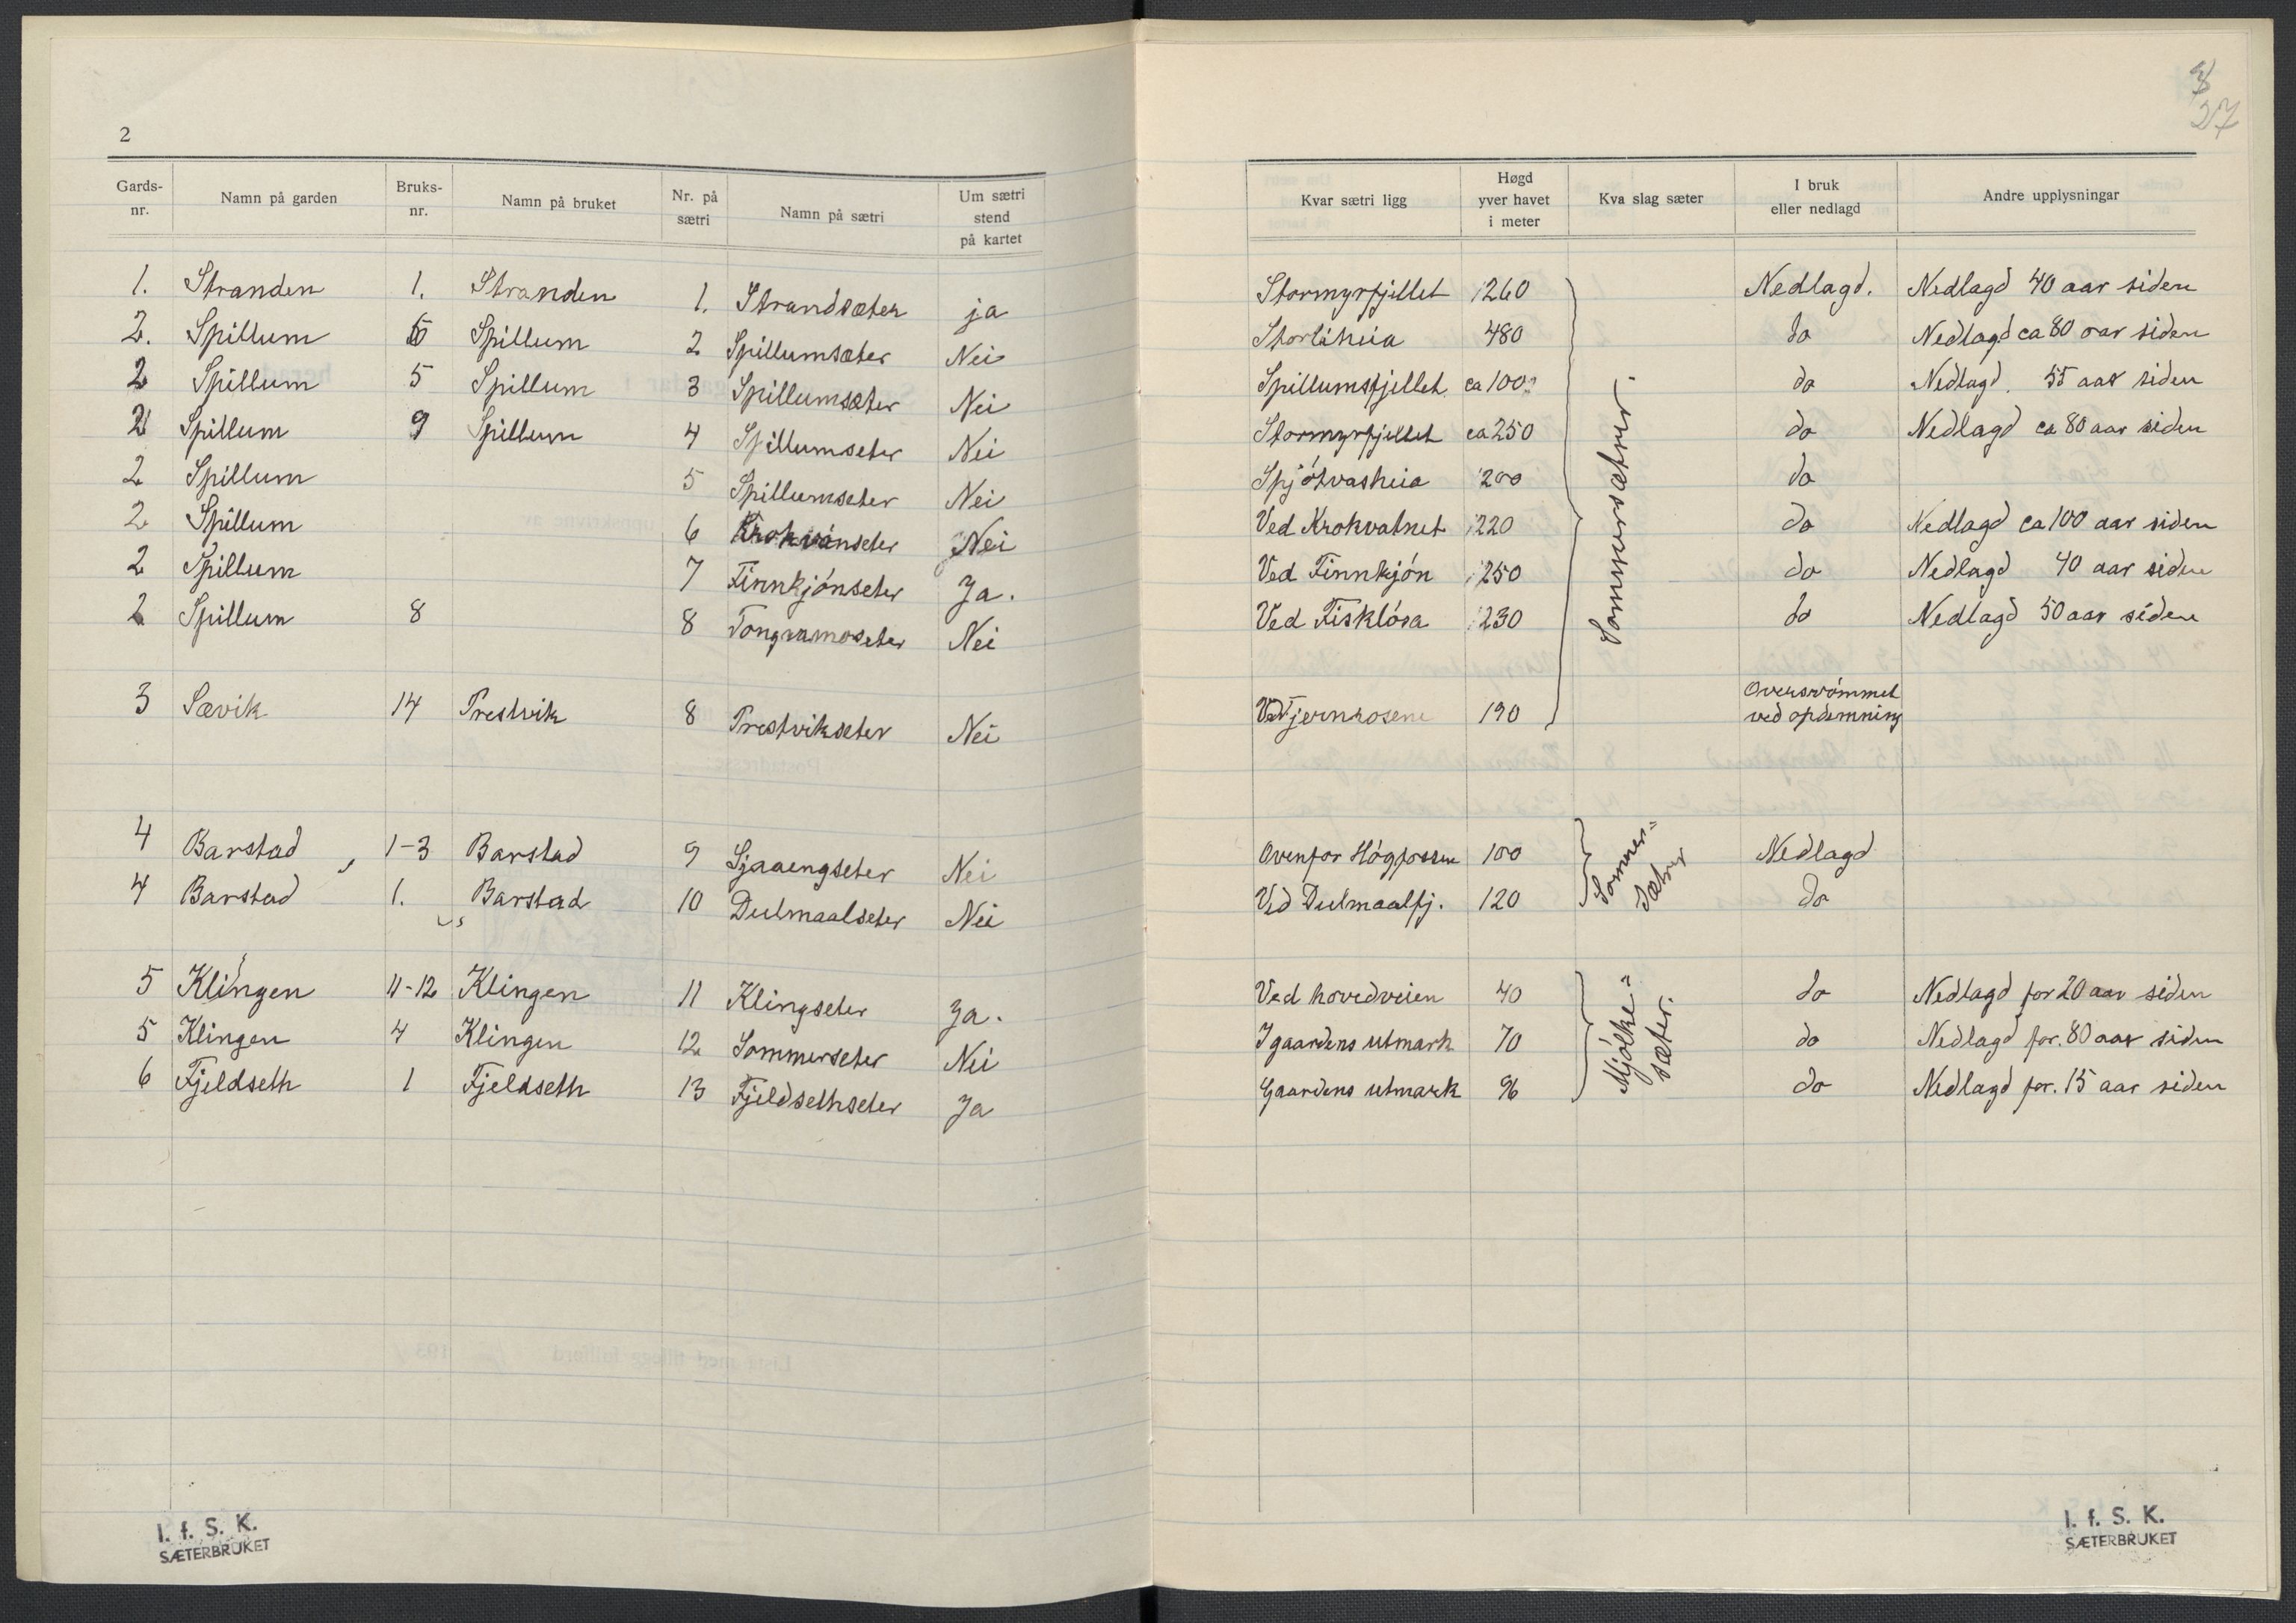 2
Gards-nr. Namn på garden Bruks-nr. Namn på bruket Nr. på sætri Namn på sætri Um sætri stend på kartet
1. Stranden 1. Stranden 1. Strandsæter ja
2. Spillum 6 Spillum 2 Spillumsæter Nei
2 Spillum 5 Spillum 3 Spillumsæter Nei
2 Spillum 9 Spillum 4 Spillumseter Nei
2 Spillum 5 Spillumseter Nei
2 Spillum 6 Nei
2 Spillum 7 Finnkjónseter Ja.
2 Spillum 8 8 Nei
3 Sævik 14 Prestvik 8 Prestvikseter Nei
4 Barstad 1-3 Barstad 9 Sjaaengseter Nei
4 Barstad 1. Barstad 10 Dulmaalseter Nei
5 Klingen 11-12 Klingen 11 Klingseter Ja.
5 Klingen 4 Klingen 12 Sommerseter Nei
6 Fjeldseth 1 Fjeldseth 13 Fjeldsethseter Ja
I. f. S. K.
SÆTERBRUKET
3
27
Kvar sætri ligg Høgd yver havet i meter Kva slag sæter I bruk eller nedlagd Andre upplysningar
Stormyrfjellet 260 Nedlagd. Nedlagd 40 aar siden
Storliheia 480 do Nedlagd ca 80 aar siden
Spillumsfjellet ca 100 do Nedlagd. 55 aar siden
Stormyrfjellet ca 250 do Nedlagd ca 80 aar siden
Spjótvasheia 200 do
Ved Krokvatnet 220 do Nedlagd ca 100 aar siden
Ved Finnkjón 250 do Nedlagd 40 aar siden
Ved Fisklósa 230 do Nedlagd 50 aar siden
Sommersætrer.
Ved Tjernrosene 190 Oversvómmet
ved opdemning
Ovenfor Høgfossen 100 Nedlagd
Ved Dulmaalfj. 120 do
Sommer=
sætrer
Ved hovedveien 40 do Nedlagd for 20 aar siden
I gaardens utmark 70 do Nedlagd for. 80 aar siden
Gaardens utmark 96 do Nedlagd for. 15 aar siden
Mjólke=
sæter.
I. f. S. K.
SÆTERBRUKET